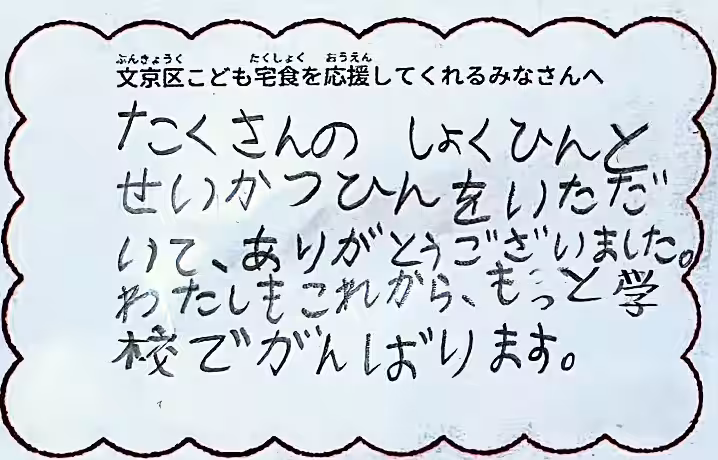 ぶんきょうく たくしょく おうえん
文京区こども宅食を応援してくれるみなさんへ
たくさんの しょくひんと
せいかつひんをいただ
いて、ありがとうございました。
わたしもこれから、もっと学
校でがんばります。